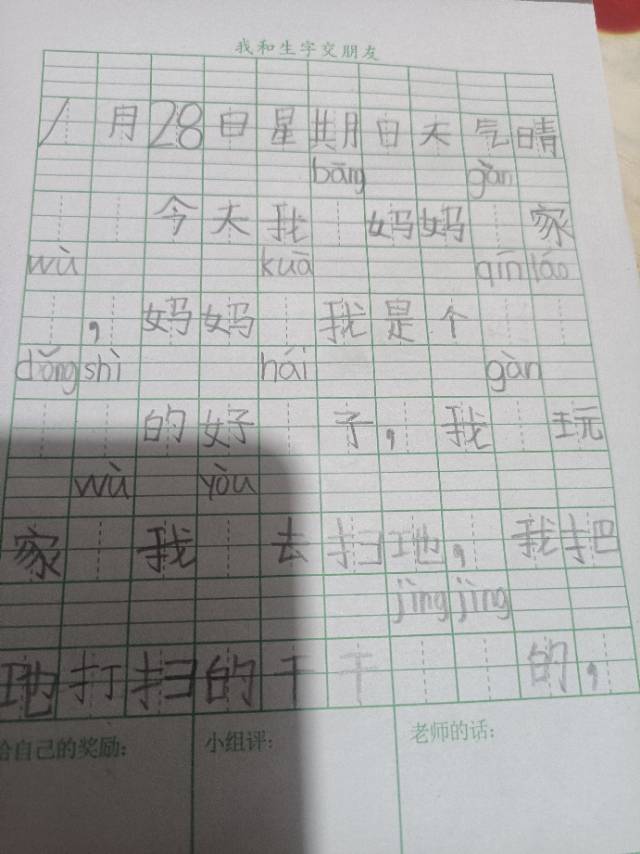 我和生字交朋友
1月28日星期日天气晴
bāng gàn
今天我 妈妈 家
wù kuā qín láo
，妈妈 我是个
dǒng shì hái gàn
的好 子，我 玩
wù yòu
家 我 去扫地，我把
jìng jìng
地打扫的干干 的，
给自己的奖励： 小组评： 老师的话：